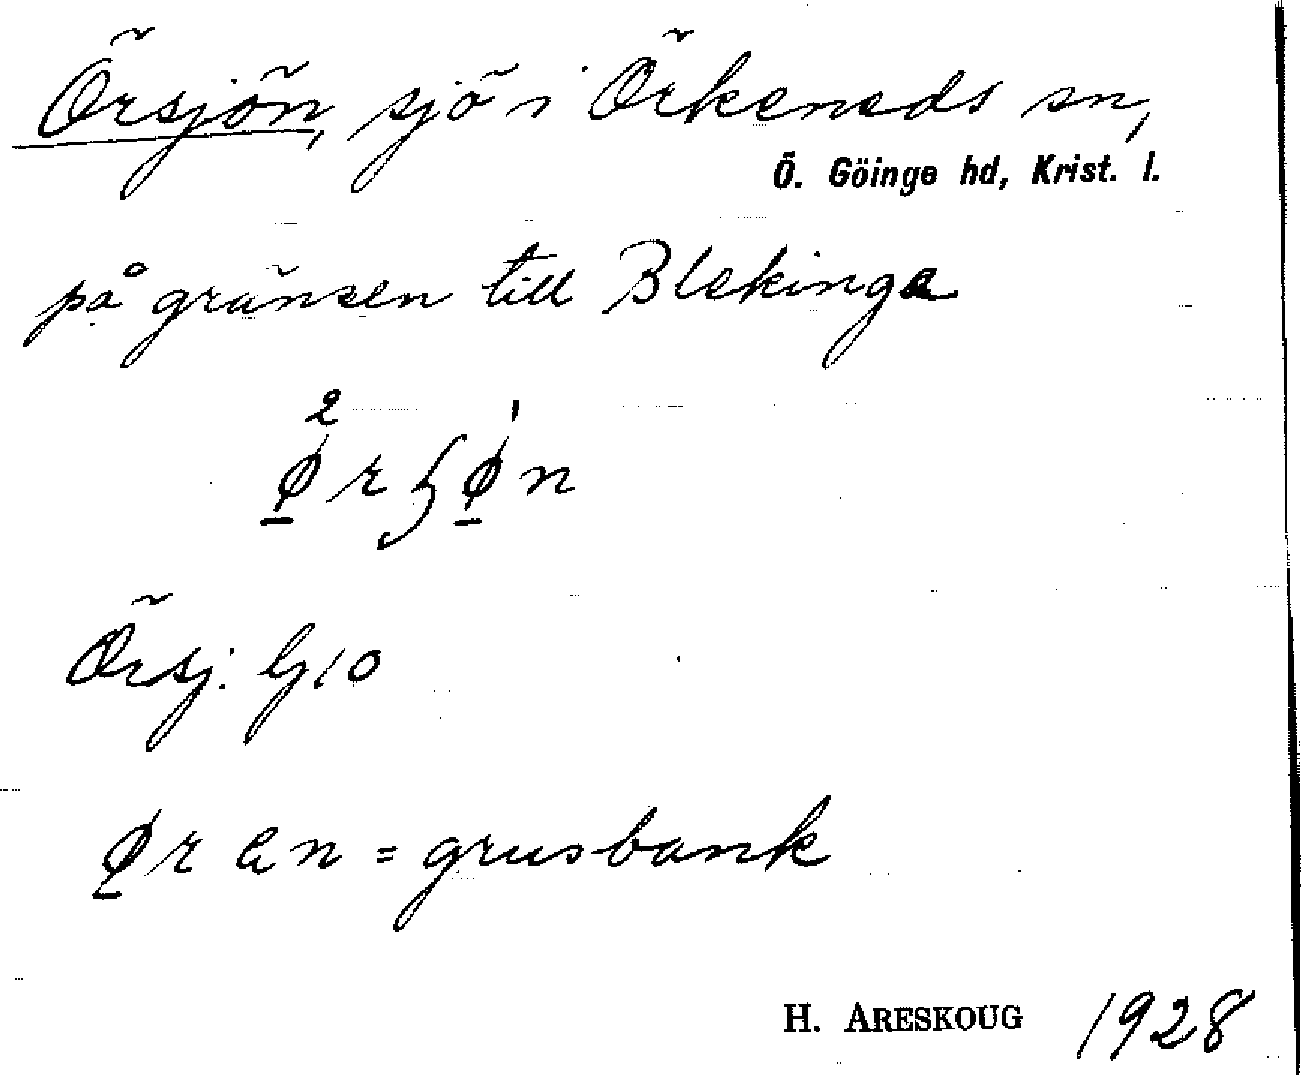 Örsjön, sjö i Örkeneds sn,
Ö. Göinge hd, Krist. l.
på gränsen till Blekinge
2 1
ø̲rʃø̲n
Örsj: G10
ø̲r en = grusbank
H. ARESKOUG 1928